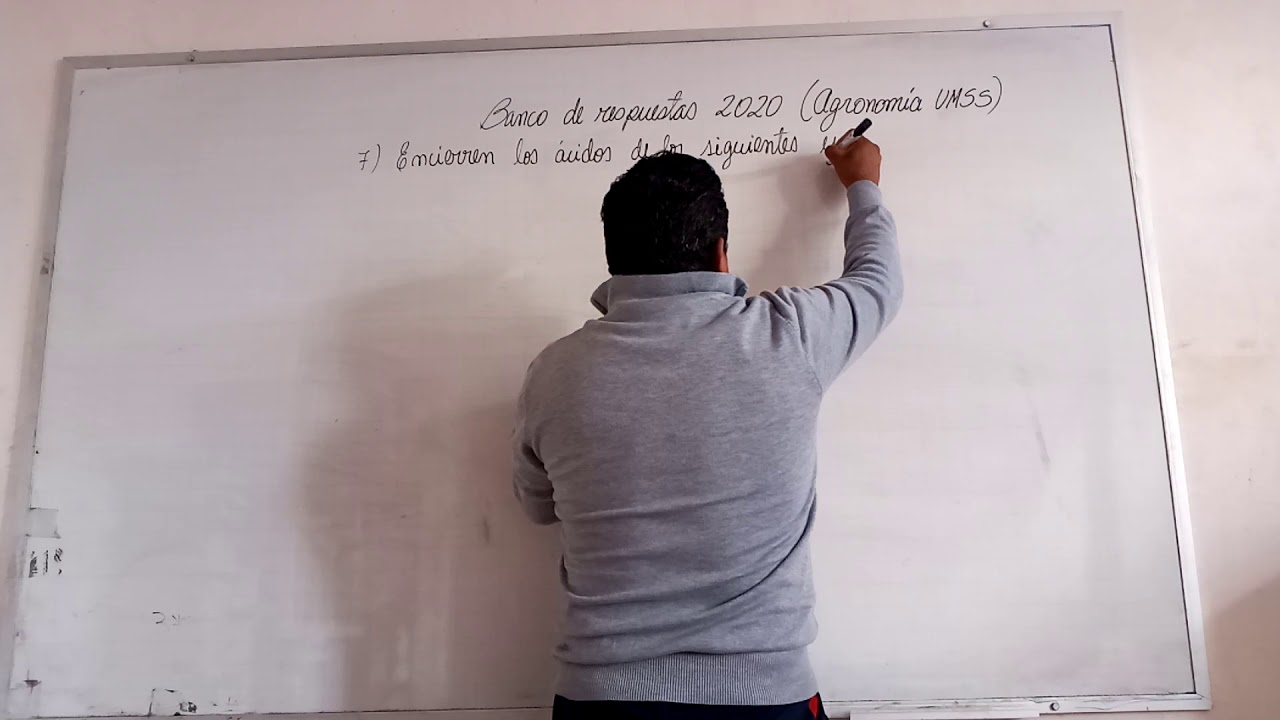 Banco de respuestas 2020 (Agronomía UMSS)
7) Encierren los ácidos de los siguientes